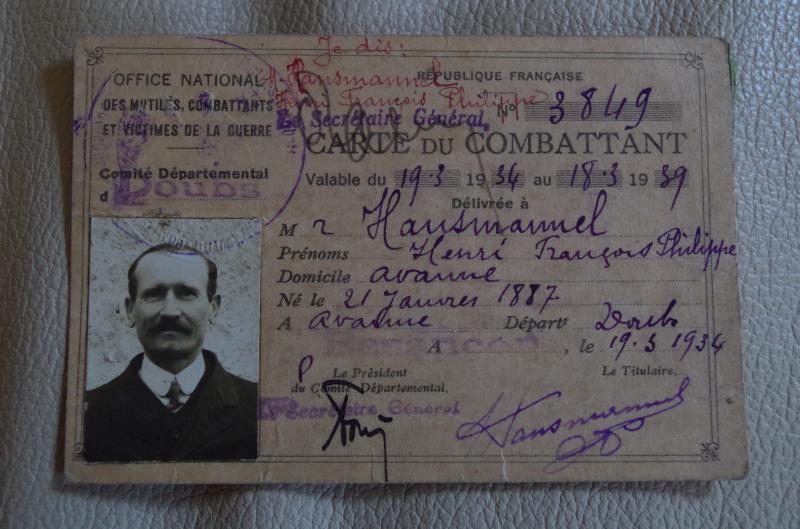 Je dis:
Hansmannel
Henri François Philippe
OFFICE NATIONAL
DES MUTILÉS, COMBATTANTS
ET VICTIMES DE LA GUERRE
Comité Départemental
d Doubs
RÉPUBLIQUE FRANÇAISE
No 3849
Le Secrétaire Général,
CARTE DU COMBATTANT
Valable du 19.3 1934 au 18.3 1939
Délivrée à
M r Hansmannel
Prénoms Henri François Philippe
Domicile avanne
Né le 21 Janvier 1887
A avanne Départt Doubs
A Besançon, le 19.3 1934
P Le Président
du Comité Départemental,
Le Titulaire,
Le Secrétaire Général
Hansmannel